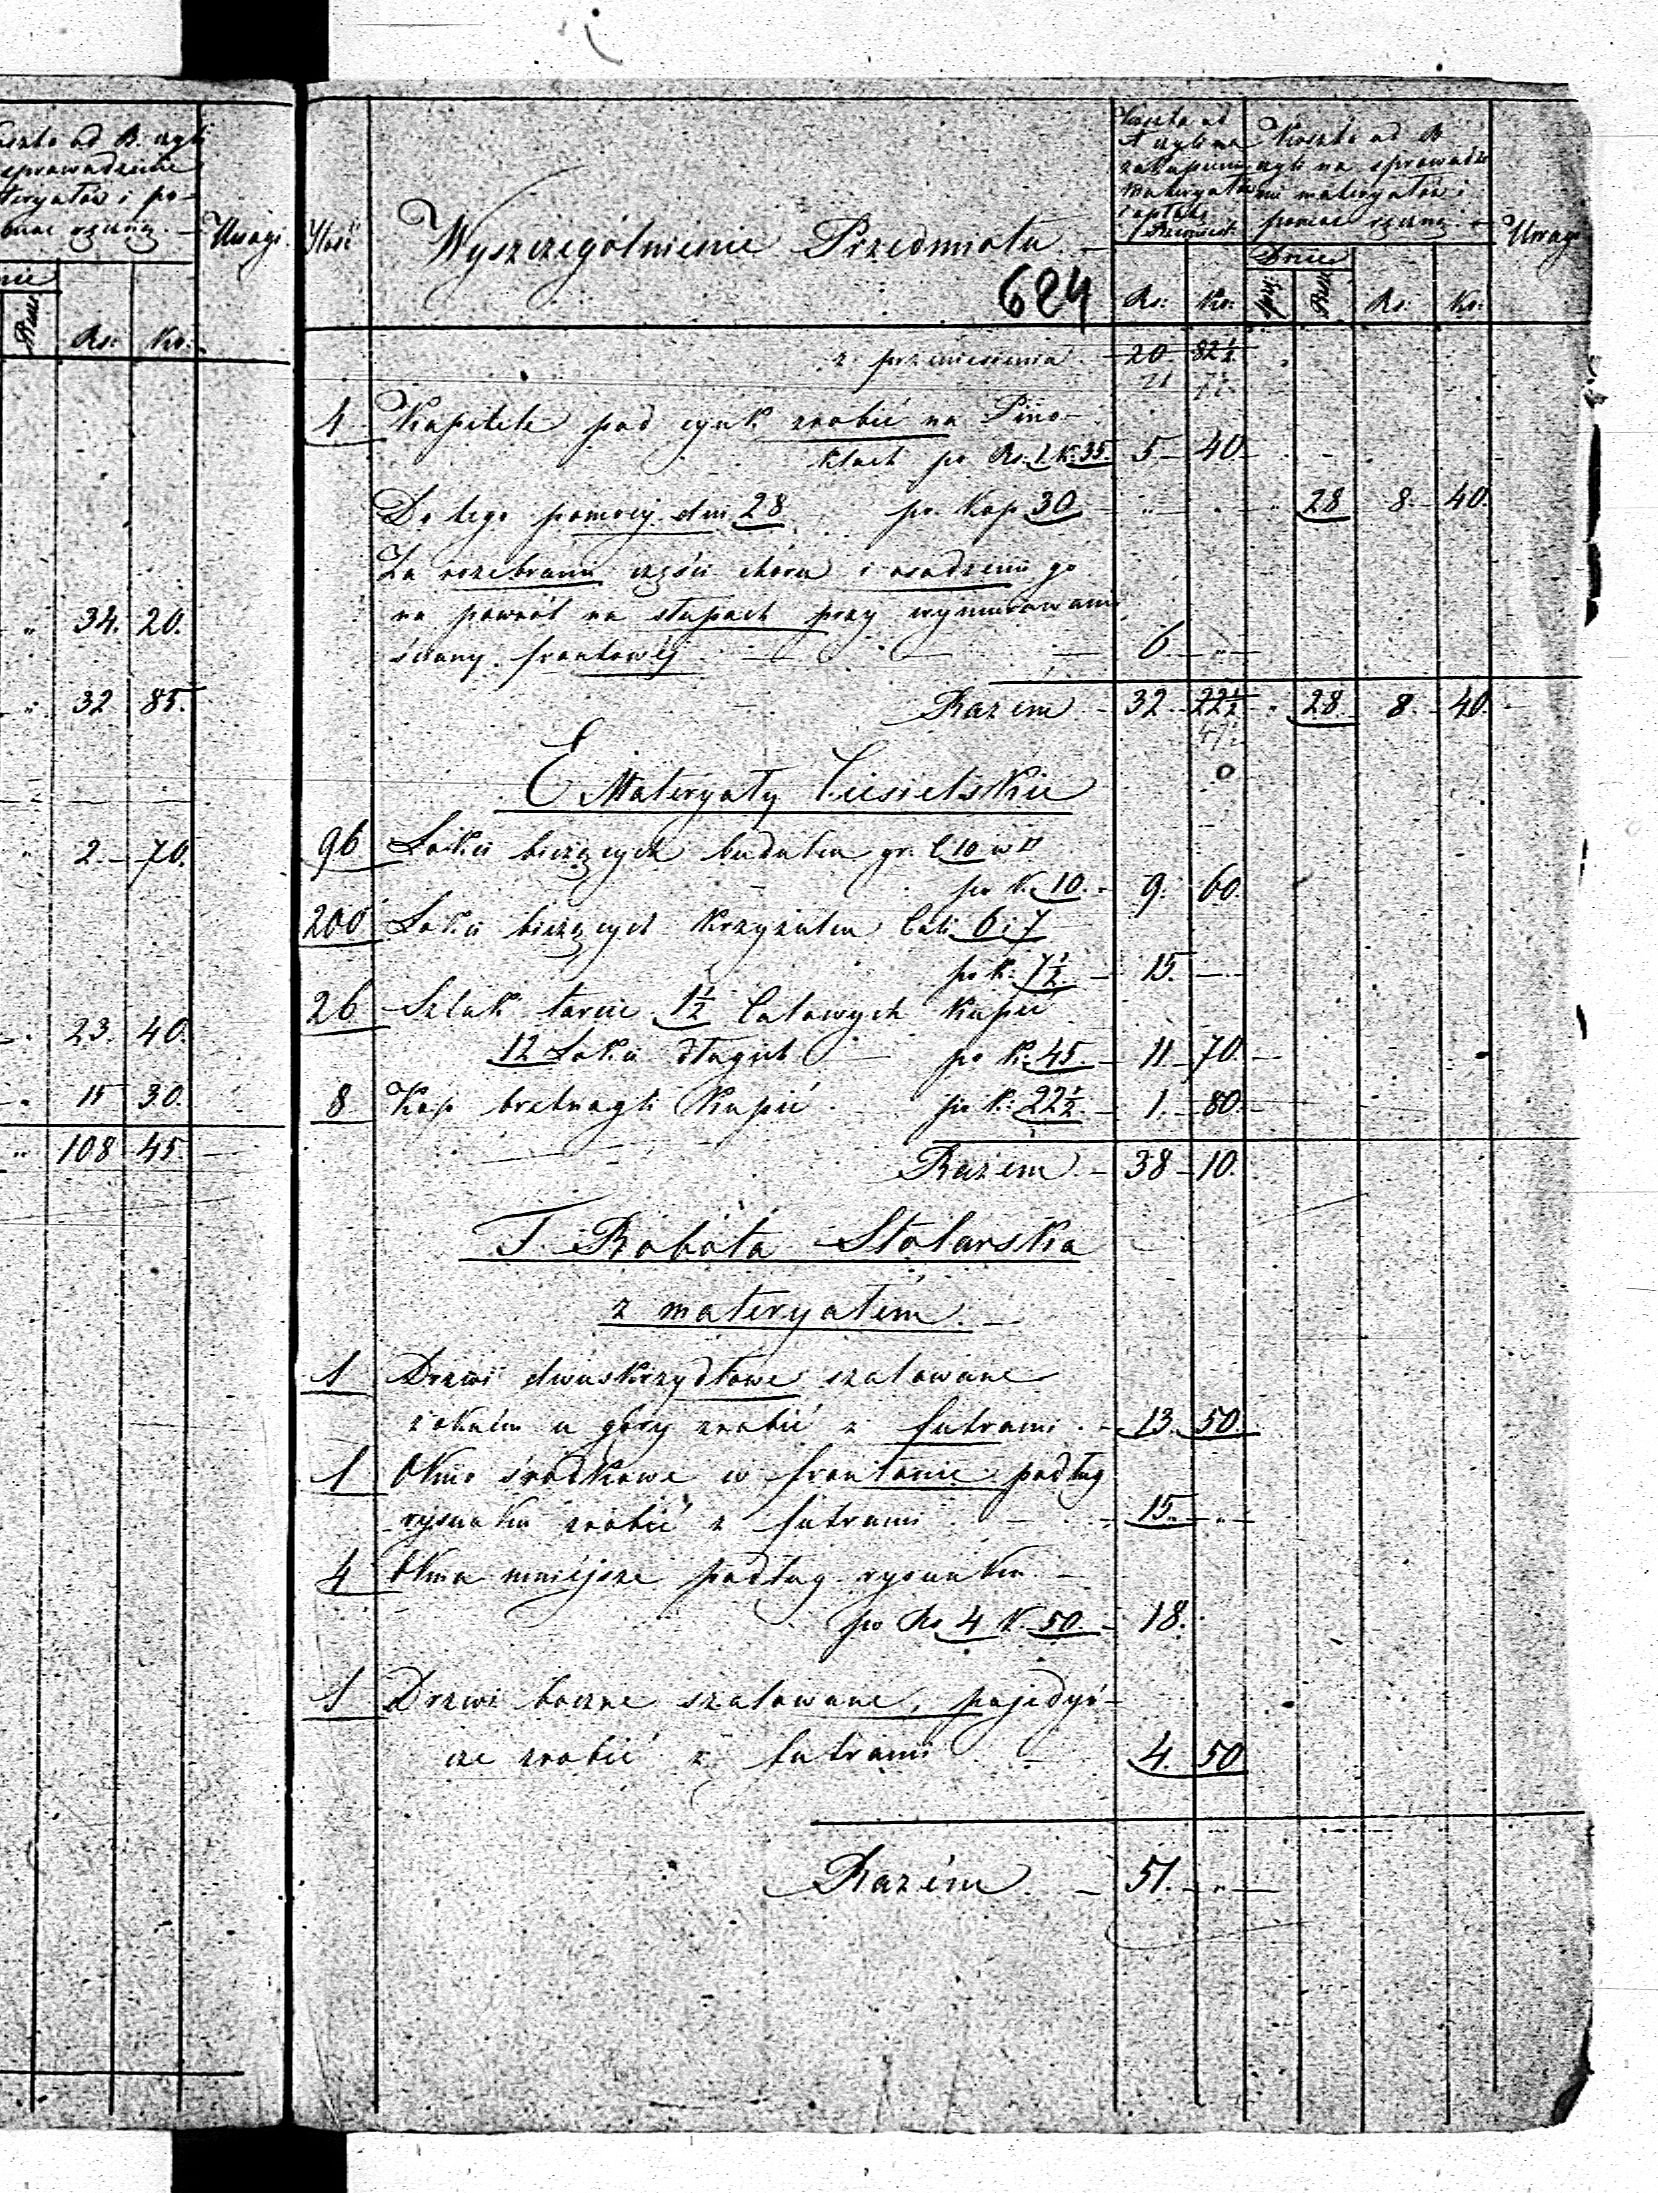 Koszta od B. czyli
sprowadzenie
Materyałów i po-
moc ręczną. —
Uwagi.
Rs: Ko:
34. 20.
32 85.
2. 70.
23. 40.
15 30.
108 45.
Ilość
Wyszczególnienie Przedmiotu —
624
Koszta od
A czyli na
zakupienie
Materyałów
i opłatę
Rzemieśl:
Koszta od B
czyli na sprowadze
nie materyałów i
pomoc ręczną. —
Uwagi
Dnie
Rs: Ko: Rs: Ko:
z przeniesienia — 20 82½
21 7½
4 Kapitele pod cynk zrobić na Pino-
klach po Rs. 1 K: 35. 5. 40
Do tego pomocy dni 28 po Kop 30 — " 28 8. 40.
Za rozebranie części chóru i osadzenie go
na powrót na słupach przy wymurowaniu
ściany frontowéj — 6. "
Razem — 32. 22½ " 28 8. 40.
47½
E Materyały Ciesielskie
96 Łokci bieżących budulcu gr. C 10 w □
po K. 10. — 9. 60.
200 Łokci bieżących Krzyżulcu Cali 6 i 7
po K: 7½ — 15. —
26 Sztuk tarcic 1½ Calowych Kupić
12 Łokci długich — po K: 45. — 11. 70.
8 Kop bretnagli Kupić. po K: 22½ — 1. 80.
Razem. — 38 10.
F. Robota Stolarska
z materyałem. —
1 Drzwi dwuskrzydłowe szalowane
z oknem u góry zrobić z futrami. — 13. 50.
1 Okno środkowe w frontonie podług
rysunku zrobić z futrami. — 15. "
4 Okna mniéjsze podług rysunku —
po Rs 4 K. 50. — 18.
1 Drzwi boczne szalowane, pojedyń-
cze zrobić z futrami — 4. 50
Razem. — 51. "